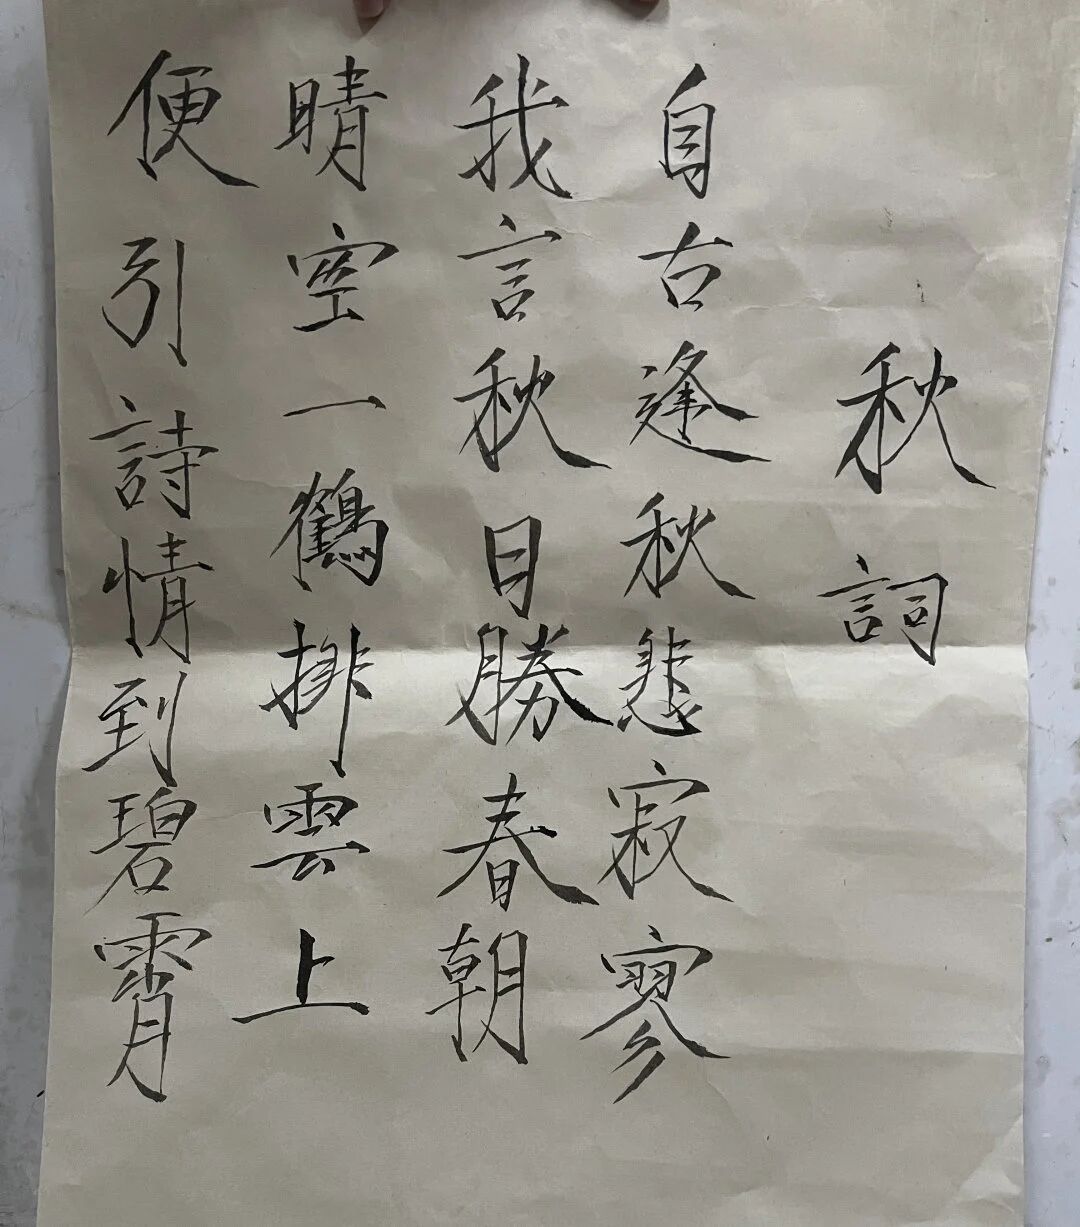 秋詞
自古逢秋悲寂寥
我言秋日勝春朝
晴空一鶴排雲上
便引詩情到碧霄